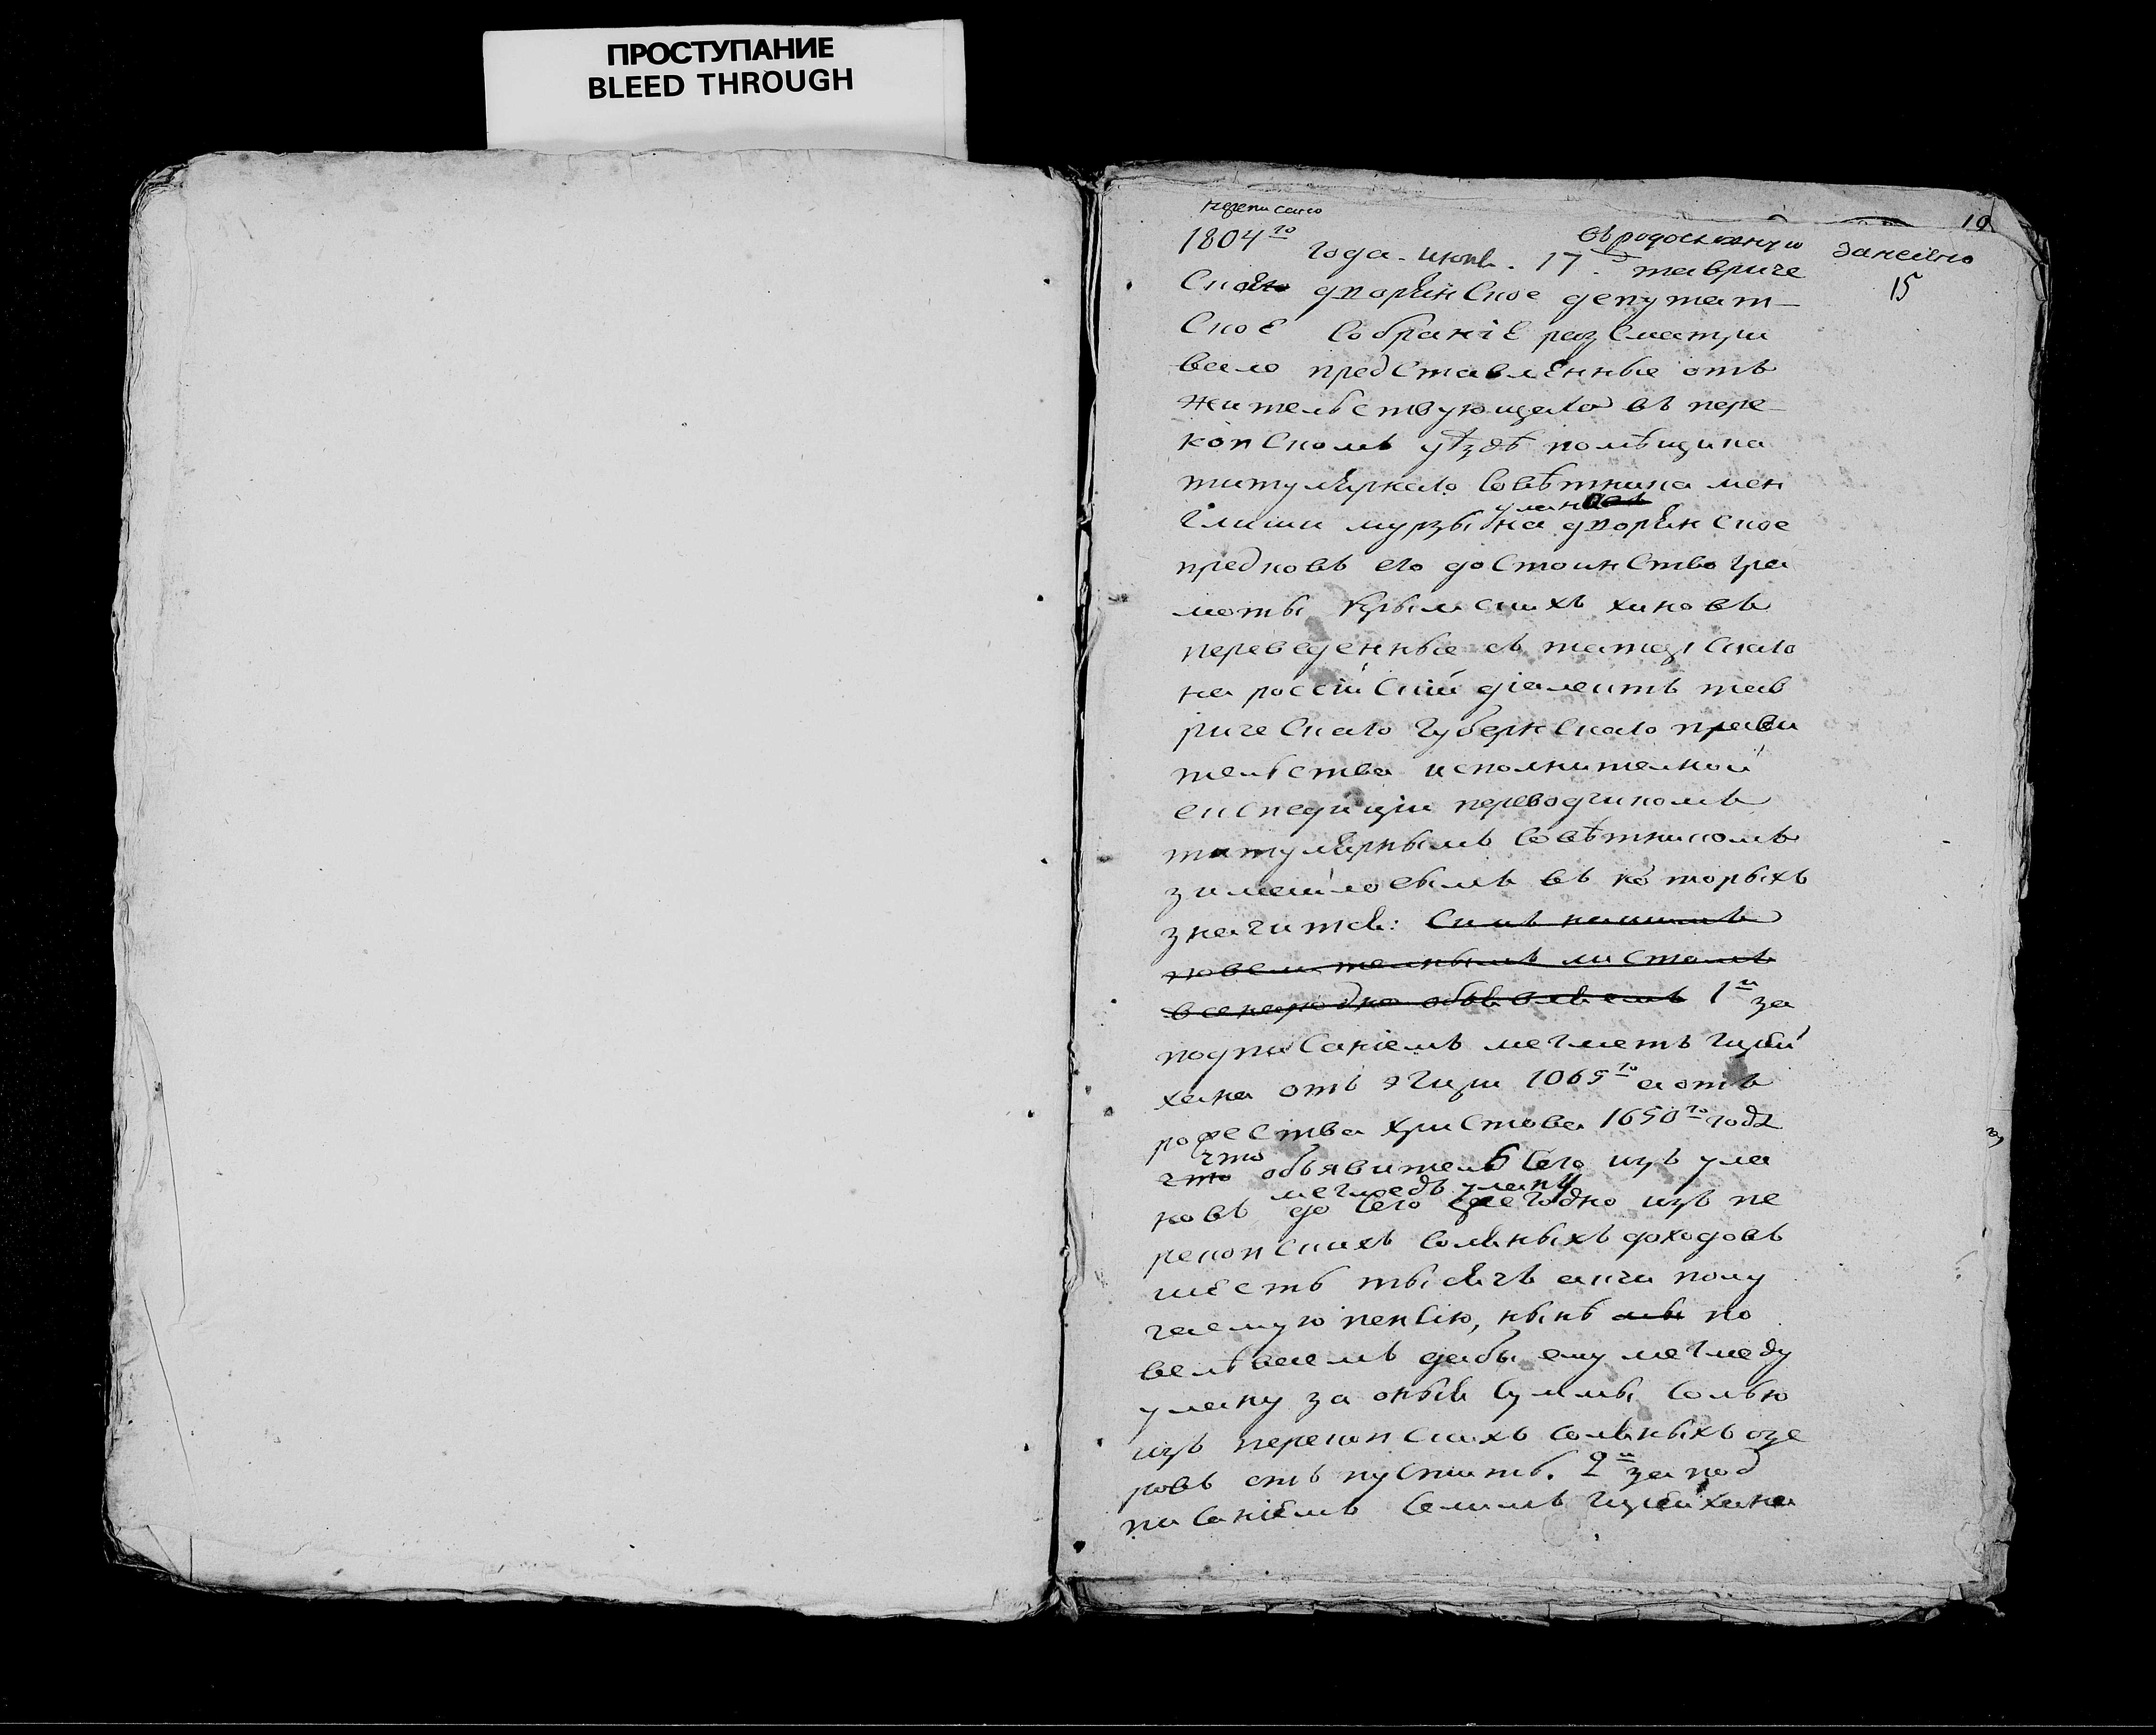 ПРОСТУПАНИЕ
BLEED THROUGH
переписано
10
въ родословную занесено
15
1804го года июня 17. тавриче
ское дворянское депутат-
ское собраніе разсматри
вало представленные отъ
жительствующаго въ пере-
копскомъ уѣздѣ помѣщика
титулярнаго совѣтника мен
улан
глиши мурзы на дворянское
предковъ его достоинство гра
моты крымскихъ хановъ
переведенные съ татарскаго
на россійскій діалектъ тав
рическаго губернскаго прави
тельства исполнителной
експедиціи переводчикомъ
титулярнымъ совѣтникомъ
измаиловымъ въ которыхъ
значится: симъ нашимъ
повелителнымъ листомъ
всенародно объявляемъ 1я за
подписаніемъ мегметъ гирей
хана отъ эгиры 1065го а отъ
рожества христова 1650го года
что
что объявитель сего изъ ула
мегмедъ улану
новъ до сего ежегодно изъ пе
рекопскихъ соляныхъ доходовъ
шесть тысячъ акчи полу
чаемую пенсію, нынѣ мы по
велѣваемъ дабы ему мегмеду
улану за оныя суммы солью
изъ перекопскихъ соляныхъ озе
ровъ отъ пустить. 2я за под
писаніемъ селимъ гирей хана